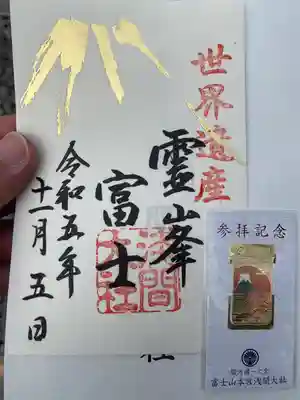 世界遺産
霊峯
富士
浅間大社
令和五年
十一月五日
社
参拝記念
駿河國一之宮
富士山本宮浅間大社